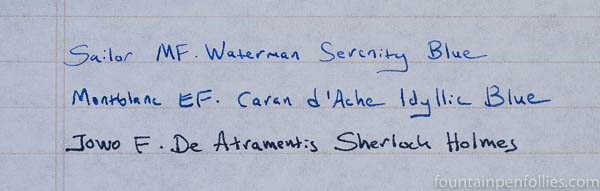 Sailor MF. Waterman Serenity Blue
Montblanc EF. Caran d'Ache Idyllic Blue
Jowo F. De Atramentis Sherlock Holmes
fountainpenfollies.com